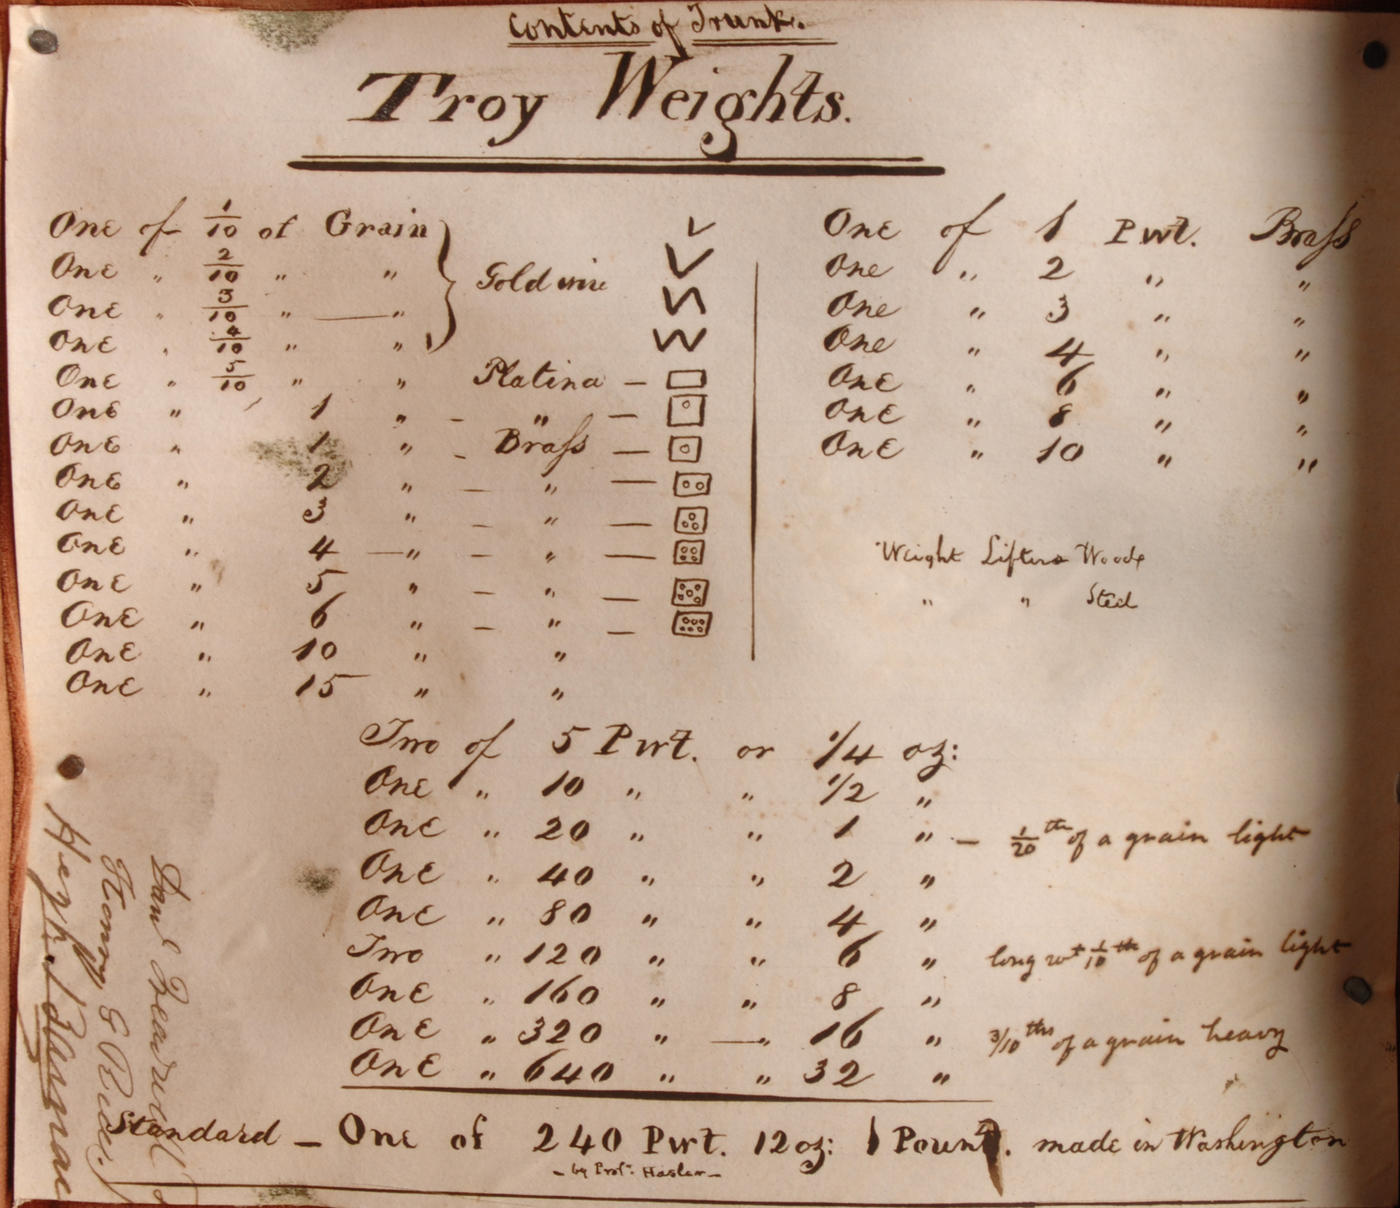 Contents of Trunk.
Troy Weights.
One of 1/10 of Grain
One " 2/10 " "
Gold wire
One " 3/10 " — "
One " 4/10 " "
One " 5/10 " " Platina —
One " 1 " – " —
One " 1 " – Brass —
One " 2 " — " —
One " 3 " – " —
One " 4 — " – " —
One " 5 " – " —
One " 6 " – " —
One " 10 " "
One " 15 " "
One of 1 Pwt. Brass
One " 2 " "
One " 3 " "
One " 4 " "
One " 6 " "
One " 8 " "
One " 10 " "
Weight Lifters Wood
" " Steel
Two of 5 Pwt. or 1/4 oz:
One " 10 " " 1/2 "
One " 20 " " 1 " – 1/20th of a grain light
One " 40 " " 2 "
One " 80 " " 4 "
Two " 120 " " 6 " long wt 1/10th of a grain light
One " 160 " " 8 "
One " 320 " — " 16 " 3/10ths of a grain heavy
One " 640 " " 32 "
Standard – One of 240 Pwt. 12 oz: 1 Pound. made in Washington
– by Profr. Hasler –